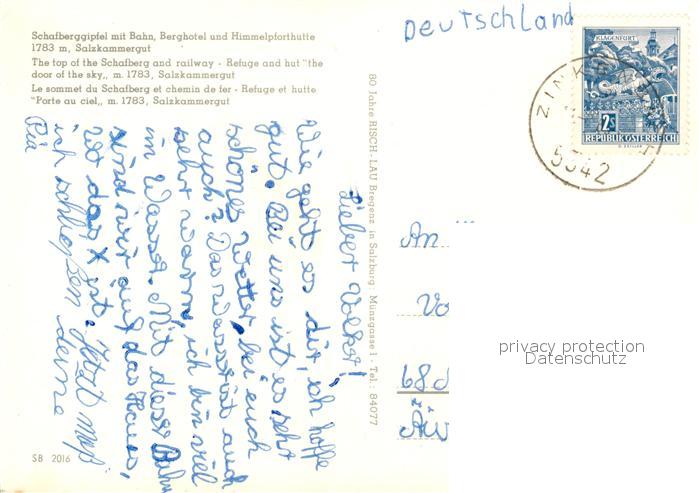 Schafberggipfel mit Bahn, Berghotel und Himmelpforthutte
1783 m, Salzkammergut
The top of the Schafberg and railway - Refuge and hut "the
door of the sky„, m. 1783, Salzkammergut
Le sommet du Schafberg et chemin de fer - Refuge et hutte
"Porte au ciel„, m. 1783, Salzkammergut
Deutschland
KLAGENFURT
2S
REPUBLIK ÖSTERREICH
5342
80 Jahre RISCH-LAU Bregenz in Salzburg: Münzgasse 1 - Tel.: 84077
Lieber Volker!
Wie geht es dir, ich hoffe
gut. Bei uns ist es sehr
schönes wetter bei euch
auch? Das Wasser ist auch
sehr warm, ich bin viel
im Wasser. Mit dieser Bahn
sind wir auf das Haus,
wo das X ist. Jetzt muß
ich schließen deine
Pia
An ...
Vo
68
privacy protection
Datenschutz
SB 2016